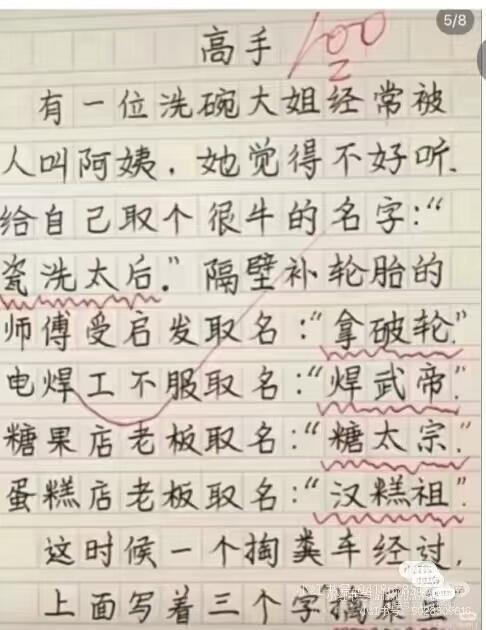 5/8
高手
100
有一位洗碗大姐经常被
人叫阿姨，她觉得不好听.
给自己取个很牛的名字:“
瓷洗太后.”隔壁补轮胎的
师傅受启发取名:“拿破轮”.
电焊工不服取名:“焊武帝”.
糖果店老板取名:“糖太宗.”
蛋糕店老板取名:“汉糕祖”.
这时候一个掏粪车经过,
上面写着三个字